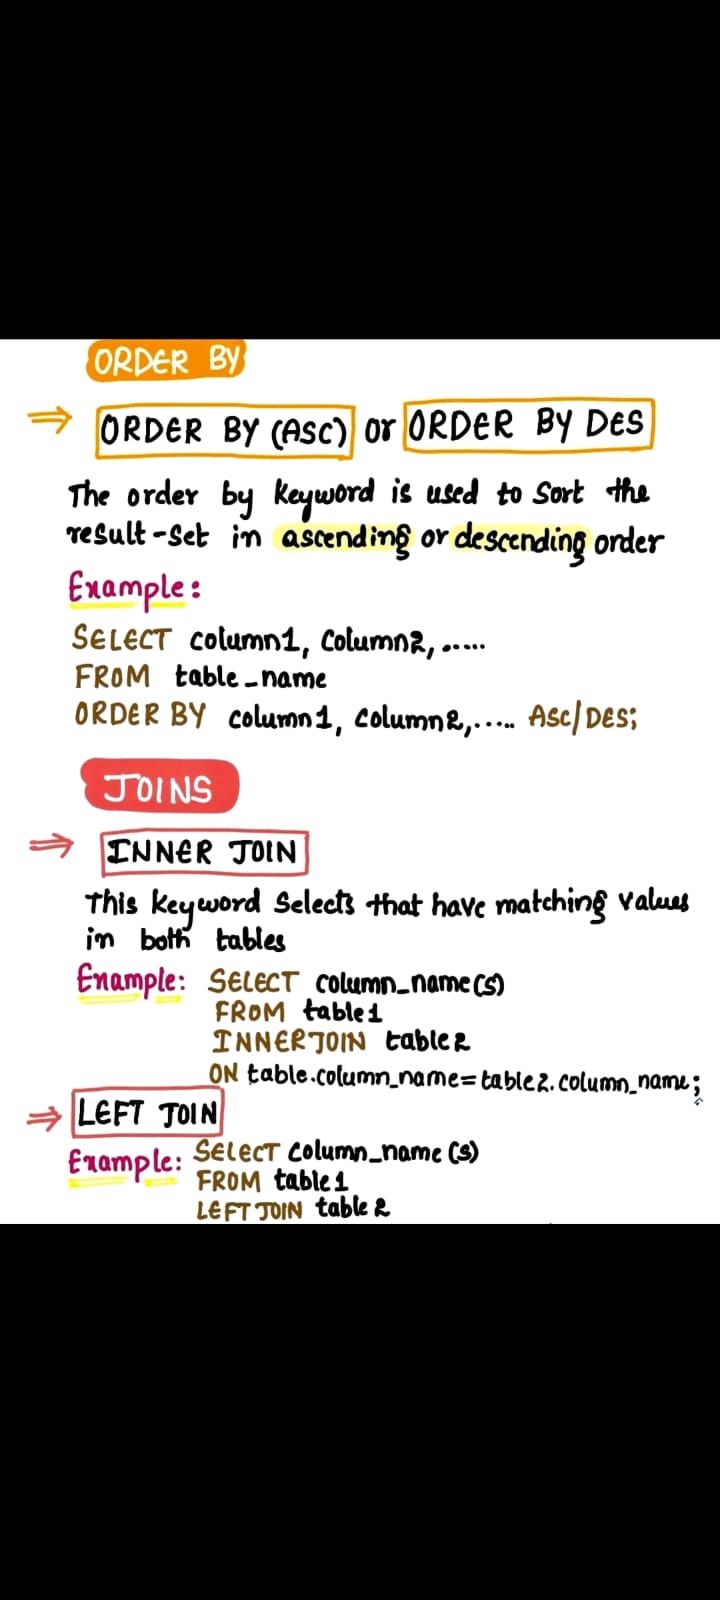 ORDER BY
⇒ ORDER BY (ASC) or ORDER BY DES
The order by keyword is used to sort the
result-set in ascending or descending order
Example:
SELECT column1, column2,.....
FROM table_name
ORDER BY column1, column2,..... ASC/DES;
JOINS
⇒ INNER JOIN
This keyword selects that have matching values
in both tables
Example: SELECT column_name(s)
FROM table1
INNER JOIN table2
ON table.column_name=table2.column_name;
⇒ LEFT JOIN
Example: SELECT column_name(s)
FROM table1
LEFT JOIN table2